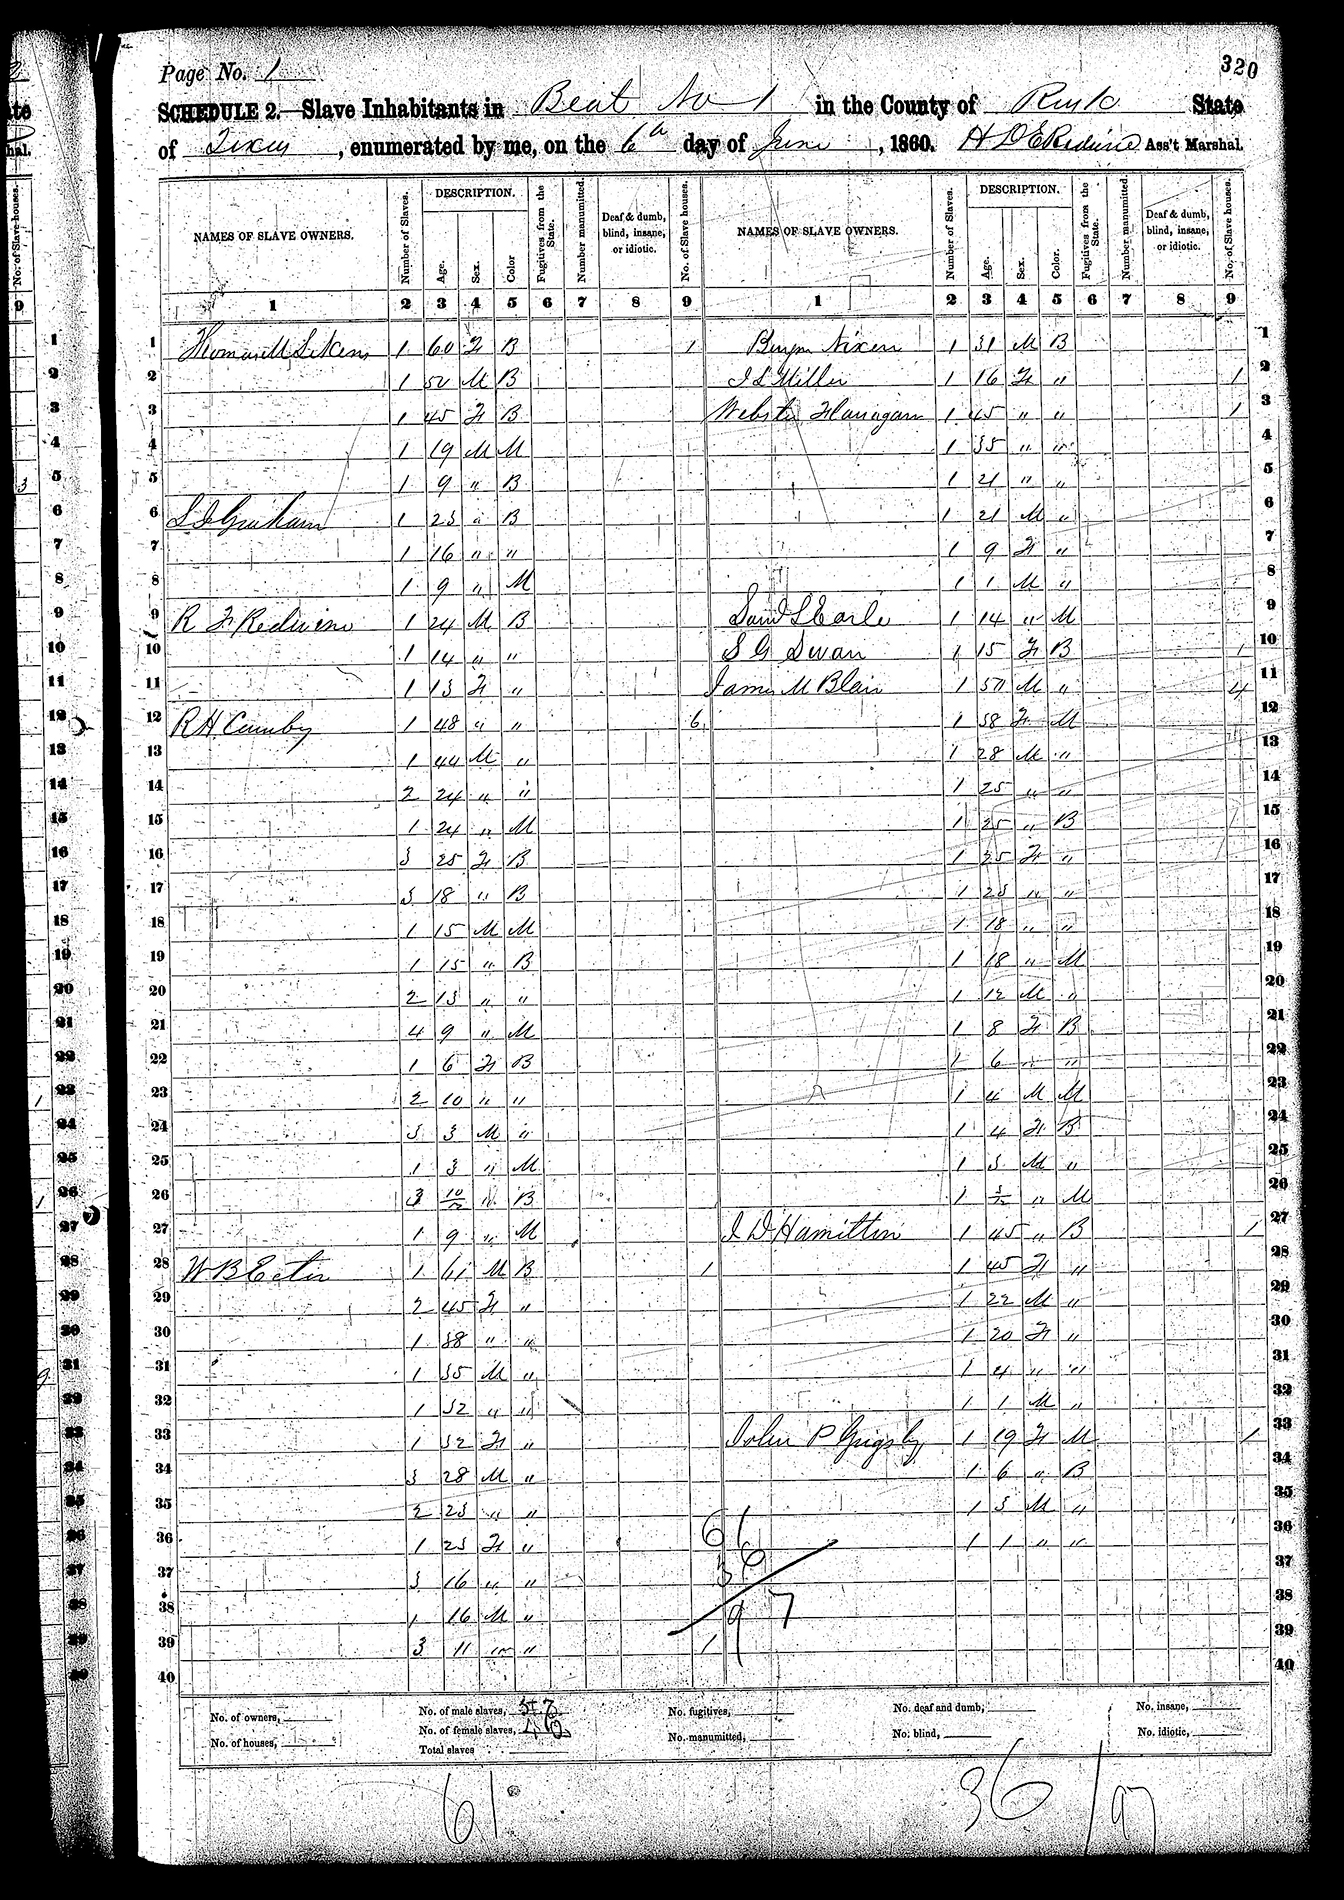 Page No. 1
320
SCHEDULE 2.—Slave Inhabitants in Beat No 1 in the County of Rusk State
of Texas, enumerated by me, on the 6th day of June, 1860. Ass't Marshal.
NAMES OF SLAVE OWNERS. Number of Slaves. DESCRIPTION. Age. Sex. Color Fugitives from the State. Number manumitted. Deaf & dumb, blind, insane, or idiotic. No. of Slave houses. NAMES OF SLAVE OWNERS. Number of Slaves. DESCRIPTION. Age. Sex. Color. Fugitives from the State. Number manumitted. Deaf & dumb, blind, insane, or idiotic. No. of Slave houses.
1 2 3 4 5 6 7 8 9 1 2 3 4 5 6 7 8 9
1 Thomas M Likens 1 60 F B 1 Benjn Nixon 1 31 M B 1
2 1 50 M B J L Miller 1 16 F " 1 2
3 1 45 F B Webster Flanagan 1 45 " " 1 3
4 1 19 M M 1 35 " " 4
5 1 9 " B 1 21 " " 5
6 Graham 1 23 " B 1 21 M " 6
7 1 16 " " 1 9 F " 7
8 1 9 " M 1 1 M " 8
9 R F Redwine 1 24 M B Saml S Earle 1 14 " M 9
10 1 14 " " S G Swan 1 15 F B 1 10
11 1 13 F " James M Blair 1 50 M " 4 11
12 R H Cumby 1 48 " " 6 1 38 F M 12
13 1 44 M " 1 28 M " 13
14 2 24 " " 1 25 " " 14
15 1 24 " M 1 25 " B 15
16 3 25 F B 1 25 F " 16
17 3 18 " B 1 23 " " 17
18 1 15 M M 1 18 " " 18
19 1 15 " B 1 18 " M 19
20 2 13 " " 1 12 M " 20
21 4 9 " M 1 8 F B 21
22 1 6 F B 1 6 " " 22
23 2 10 " " 1 4 M M 23
24 3 3 M " 1 4 F B 24
25 1 3 " M 1 3 M " 25
26 3 10/12 " B 1 3/12 " M 26
27 1 9 " M J D Hamilton 1 45 " B 1 27
28 W B Ector 1 61 M B 1 1 45 F " 28
29 2 45 F " 1 22 M " 29
30 1 38 " " 1 20 F " 30
31 1 35 M " 1 4 " " 31
32 1 32 " " 1 1 M " 32
33 1 32 F " John P Grigsby 1 19 F M 1 33
34 3 28 M " 1 6 " B 34
35 2 23 " " 1 3 M " 35
36 1 23 F " 61 1 1 " " 36
37 3 16 " " 36 37
38 1 16 M " 97 38
39 3 11 " " 1 39
40 40
No. of owners, No. of male slaves, No. of fugitives, No. deaf and dumb, No. insane,
No. of houses, No. of female slaves, No. manumitted, No. blind, No. idiotic,
Total slaves
61 36 / 97